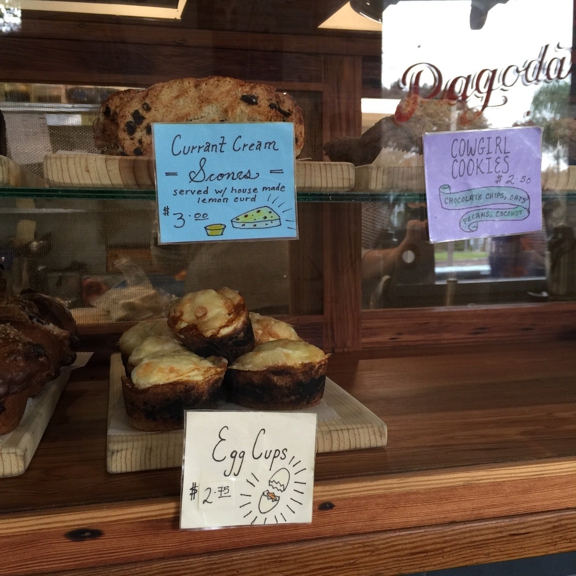 Pagoda
Currant Cream
Scones
served w/ house made
lemon curd
$3.00
COWGIRL
COOKIES
$2.50
CHOCOLATE CHIPS, OATS
PECANS, COCONUT
Egg Cups
$2.75